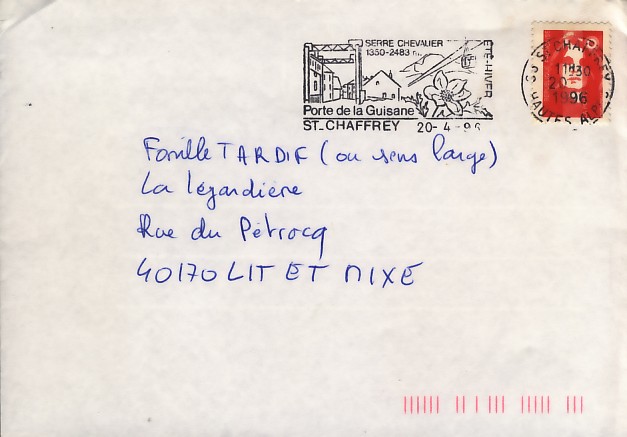 SERRE CHEVALIER
1350-2483 m.
ÉTÉ-HIVER
Porte de la Guisane
ST_CHAFFREY 20-4-96
ST CHAFFREY
11H30
20-4
1996
HAUTES ALPES
Famille TARDIF (au sens large)
La lézardière
Rue du Pétrocq
40170 LIT ET MIXE